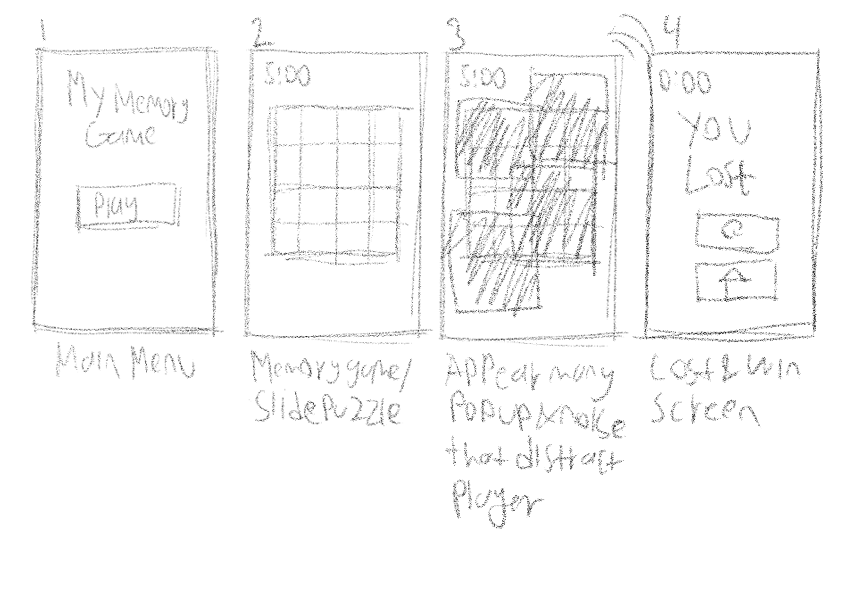 1
My Memory
Game
Play
Main Menu
2
5:00
Memory game/
Slide Puzzle
3
5:00
Appear many
Popup & noise
that distract
player
4
0:00
YOU
Lost
Lost & Win
Screen